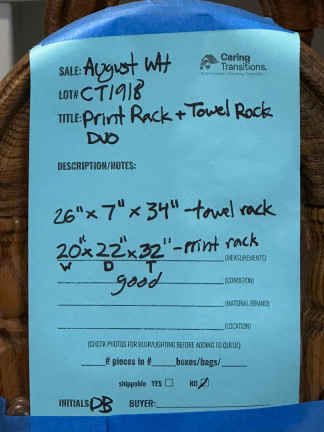 Caring
Transitions.
SALE: August WH
LOT# CT1918
TITLE: Print Rack + Towel Rack
DUO
DESCRIPTION/NOTES:
26" x 7" x 34" - towel rack
20" x 22" x 32" - print rack
(MEASUREMENTS)
W D T
good
(CONDITION)
(MATERIAL/BRAND)
(LOCATION)
(CHECK PHOTOS FOR BLUR/LIGHTING BEFORE ADDING TO QUEUE)
# pieces in # boxes/bags/
shippable YES NO
INITIALS DB BUYER: